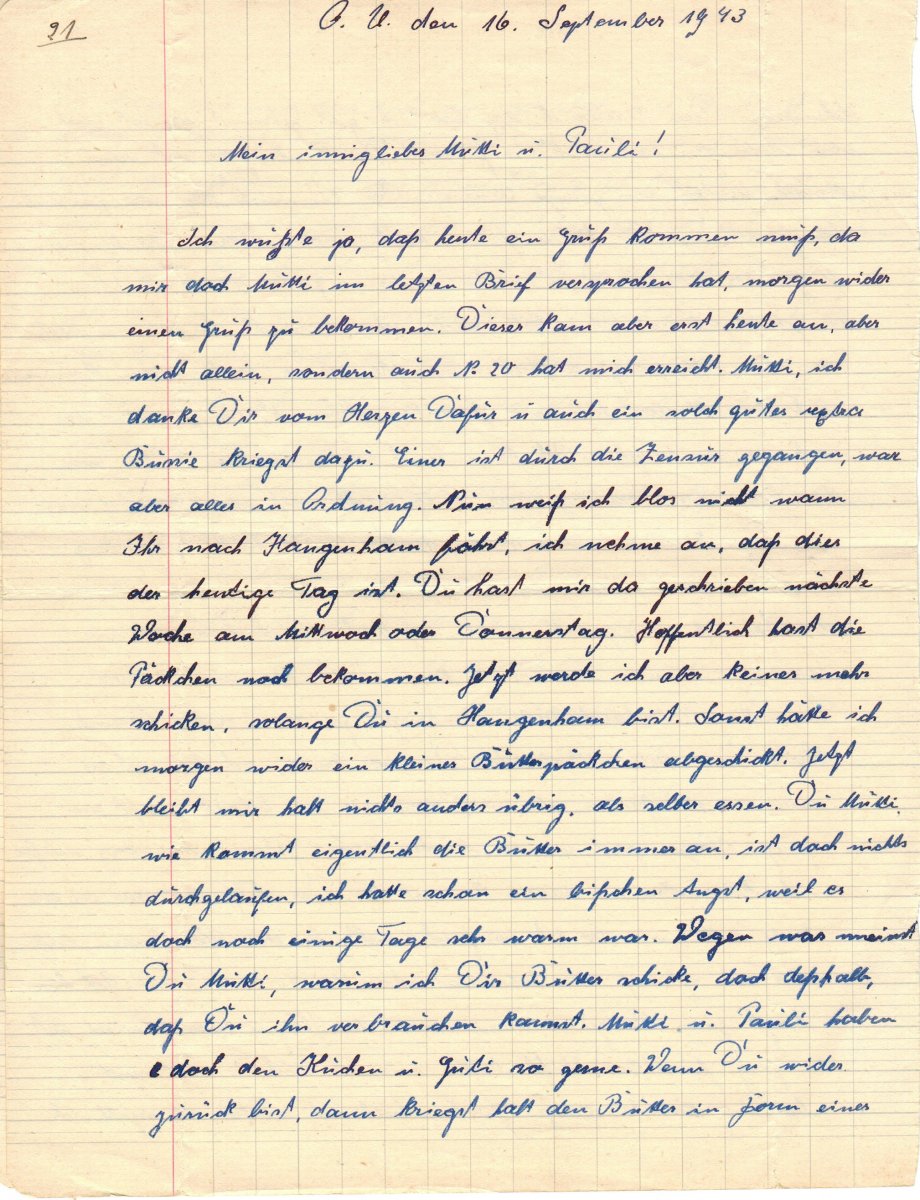 21
O. U. den 16. September 1943
Mein inniglieber Mutti u. Pauli!
Ich wußte ja, daß heute ein Gruß kommen muß, da
mir doch Mutti im letzten Brief versprochen hat, morgen wider
einen Gruß zu bekommen. Dieser kam aber erst heute an, aber
nicht allein, sondern auch N. 20 hat mich erreicht. Mutti, ich
danke Dir vom Herzen Dafür u auch ein solch gutes extra
Bussie kriegst dazu. Einer ist durch die Zensur gegangen, war
aber alles in Ordnung. Nun weiß ich blos nicht wann
Ihr nach Hangenham fährt, ich nehme an, daß dies
der heutige Tag ist. Du hast mir da geschrieben nächste
Woche am Mittwoch oder Donnerstag. Hoffentlich hast die
Päckchen noch bekommen. Jetzt werde ich aber keines mehr
schicken, solange Du in Hangenham bist. Sonst hätte ich
morgen wider ein kleines Butterpäckchen abgeschickt. Jetzt
bleibt mir halt nichts anders übrig, als selber essen. Du Mutti,
wie kommt eigentlich die Butter immer an, ist doch nichts
durchgelaufen, ich hatte schon ein bißchen Angst, weil es
doch noch einige Tage sehr warm war. Wegen was meinst
Du Mutti, warum ich Dir Butter schicke, doch deßhalb,
daß Du ihn verbrauchen kannst. Mutti u. Pauli haben
doch den Kuchen u. Guti so gerne. Wenn Du wider
zurück bist, dann kriegst halt den Butter in Form eines